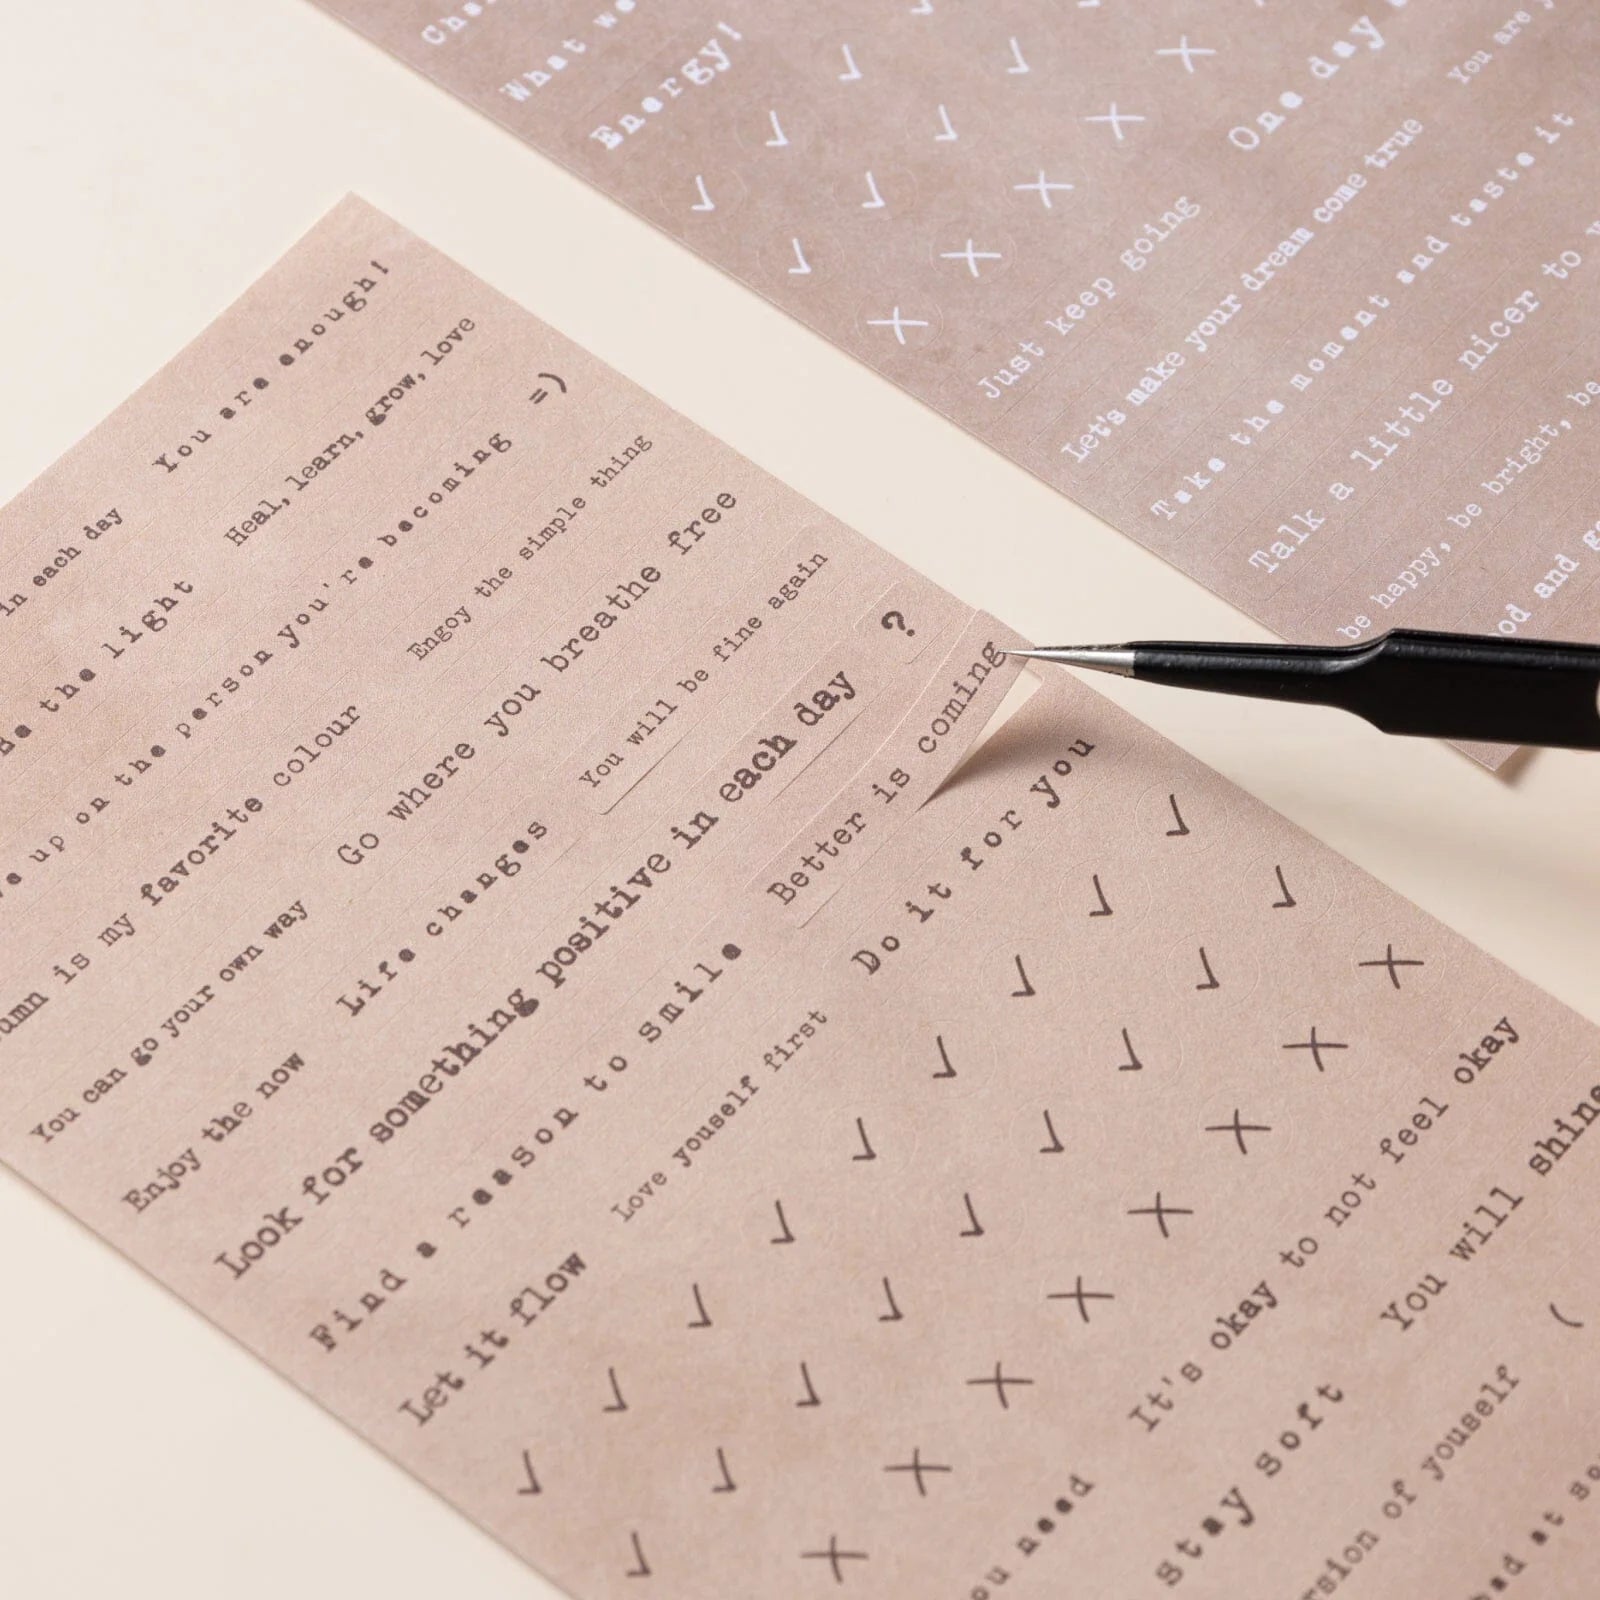 You are enough!
in each day
Heal, learn, grow, love
the light
=)
up on the person you're becoming
Engoy the simple thing
is my favorite colour
Go where you breathe free
You can go your own way
You will be fine again
Life changes
?
Enjoy the now
Look for something positive in each day
Better is coming
Find a reason to smile
Do it for you
Let it flow
Love youself first
✓ ✓ ✓ ✓ ✓ ✓ ✓ ✓ ✓
✓ ✓ ✓ ✓ ✓ ✓ ✓
X X X X X X X X
It's okay to not feel okay
need
You will shine
Stay soft
(
of youself
at
What
Energy!
✓ ✓ ✓
✓ ✓ ✓ ✓
X X X X X
One day
You are
Just keep going
Let's make your dream come true
Take the moment and taste it
Talk a little nicer to
be happy, be bright, be
and